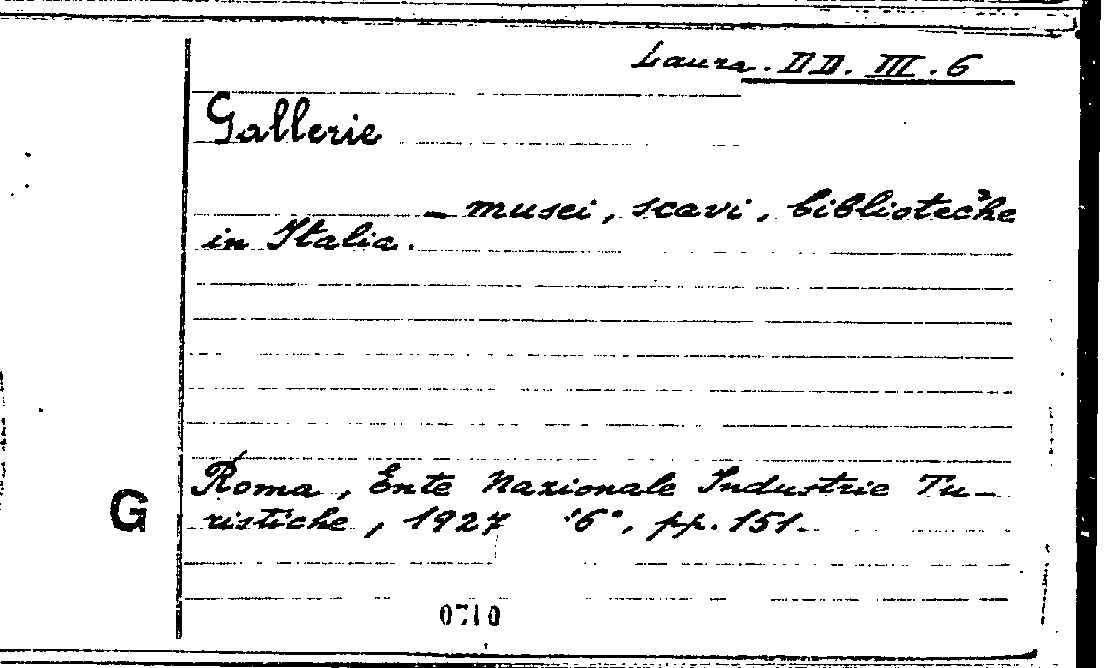 Laura. DD. III. 6
Gallerie
– musei, scavi, biblioteche
in Italia.
Roma, Ente Nazionale Industrie Tu-
G
ristiche, 1927 '6°, pp. 151.
0710